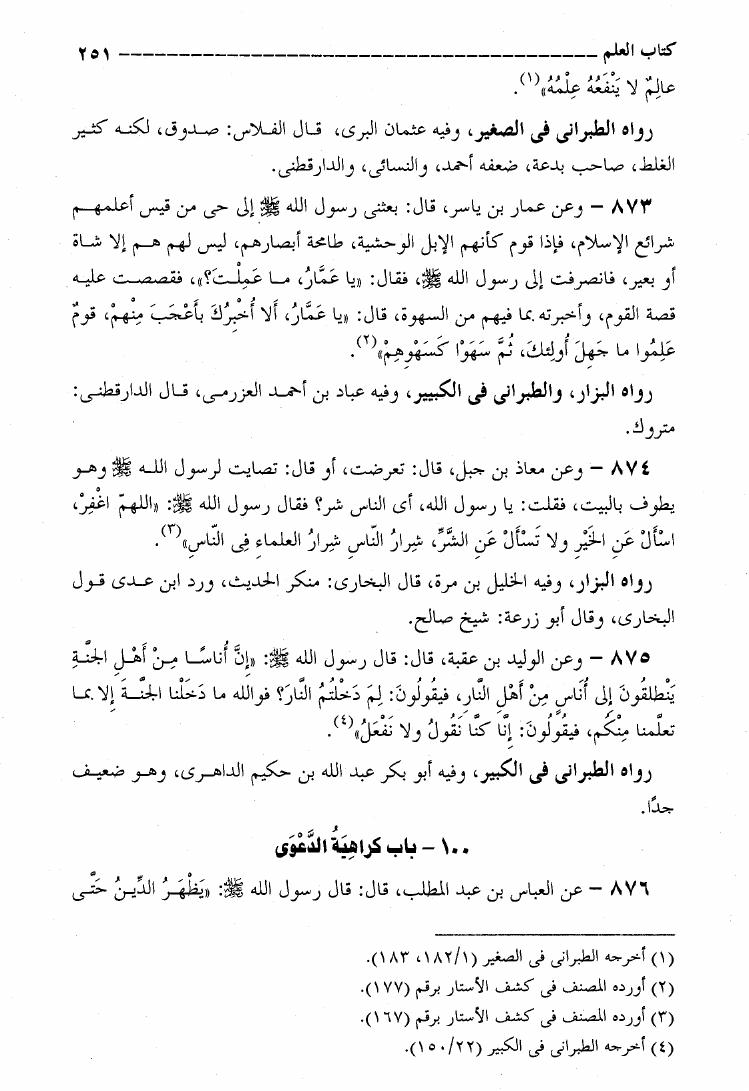 كتاب العلم ــــــــــــــــــــــــــــــــــــــ ٢٥١
عالِمٌ لا يَنْفَعُهُ عِلْمُهُ»(١).
رواه الطبرانى فى الصغير، وفيه عثمان البرى، قال الفلاس: صدوق، لكنه كثير
الغلط، صاحب بدعة، ضعفه أحمد، والنسائى، والدارقطنى.
٨٧٣ – وعن عمار بن ياسر، قال: بعثنى رسول الله ﷺ إلى حى من قيس أعلمهم
شرائع الإسلام، فإذا قوم كأنهم الإبل الوحشية، طامحة أبصارهم، ليس لهم هم إلا شاة
أو بعير، فانصرفت إلى رسول الله ﷺ، فقال: «يا عَمَّارُ، ما عَمِلْتَ؟»، فقصصت عليه
قصة القوم، وأخبرته بما فيهم من السهوة، قال: «يا عَمَّارُ، ألا أُخْبِرُكَ بأَعْجَبَ مِنْهمْ، قومٌ
عَلِمُوا ما جَهِلَ أُولئِكَ، ثُمَّ سَهَوْا كَسَهْوِهِمْ»(٢).
رواه البزار، والطبرانى فى الكبيير، وفيه عباد بن أحمد العزرمى، قال الدارقطنى:
متروك.
٨٧٤ – وعن معاذ بن جبل، قال: تعرضت، أو قال: تصايت لرسول الله ﷺ وهو
يطوف بالبيت، فقلت: يا رسول الله، أى الناس شر؟ فقال رسول الله ﷺ: «اللهمّ اغْفِرْ،
اسْأَلْ عَنِ الخَيْرِ ولا تَسْأَلْ عَنِ الشَّرِّ، شِرارُ النّاسِ شِرارُ العلماءِ فِى النّاسِ»(٣).
رواه البزار، وفيه الخليل بن مرة، قال البخارى: منكر الحديث، ورد ابن عدى قول
البخارى، وقال أبو زرعة: شيخ صالح.
٨٧٥ – وعن الوليد بن عقبة، قال: قال رسول الله ﷺ: «إنَّ أُناسًا مِنْ أَهْلِ الجنَّةِ
يَنْطلقُونَ إلى أُناسٍ مِنْ أَهْلِ النَّارِ، فيقُولُونَ: لِمَ دَخْلتُمُ النَّارَ؟ فوالله ما دَخَلْنا الجنَّةَ إلا بما
تعلَّمنا مِنْكُم، فيقُولُونَ: إنَّا كنَّا نَقُولُ ولا نَفْعَلُ»(٤).
رواه الطبرانى فى الكبير، وفيه أبو بكر عبد الله بن حكيم الداهرى، وهو ضعيف
جدًا.
١٠٠ – باب كراهِيَةُ الدَّعْوَى
٨٧٦ – عن العباس بن عبد المطلب، قال: قال رسول الله ﷺ: «يَظْهَرُ الدِّينُ حَتَّى
(١) أخرجه الطبرانى فى الصغير (١٨٢/١، ١٨٣).
(٢) أورده المصنف فى كشف الأستار برقم (١٧٧).
(٣) أورده المصنف فى كشف الأستار برقم (١٦٧).
(٤) أخرجه الطبرانى فى الكبير (١٥٠/٢٢).